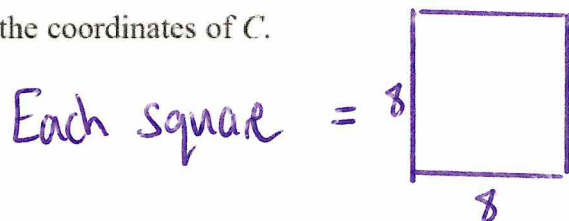 the coordinates of C.
Each square = 8
8